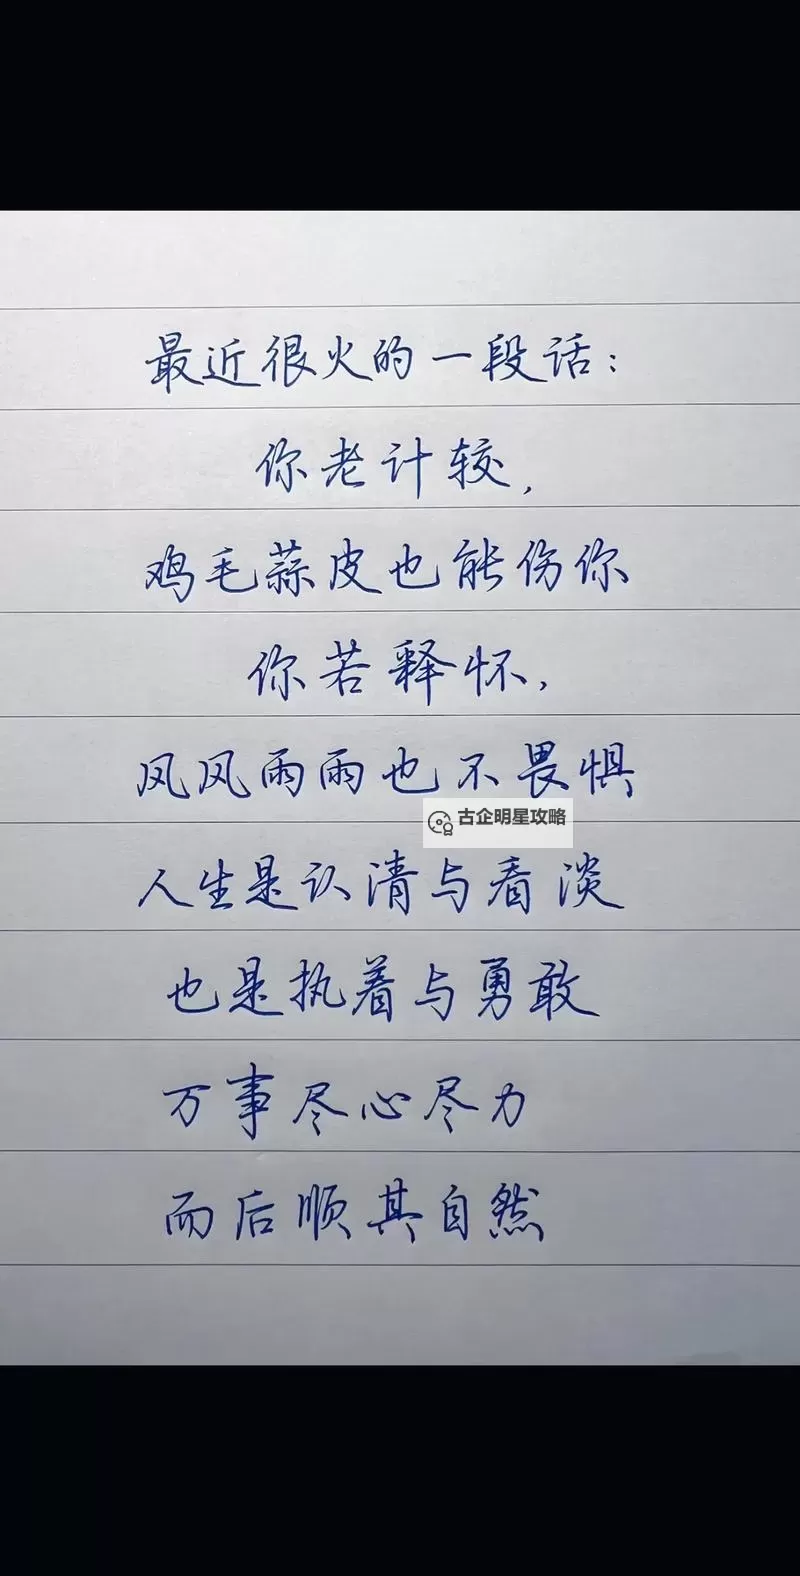 最近很火的一段话：
你老计较，
鸡毛蒜皮也能伤你
你若释怀，
风风雨雨也不畏惧
古企明星攻略
人生是认清与看淡
也是执着与勇敢
万事尽心尽力
而后顺其自然